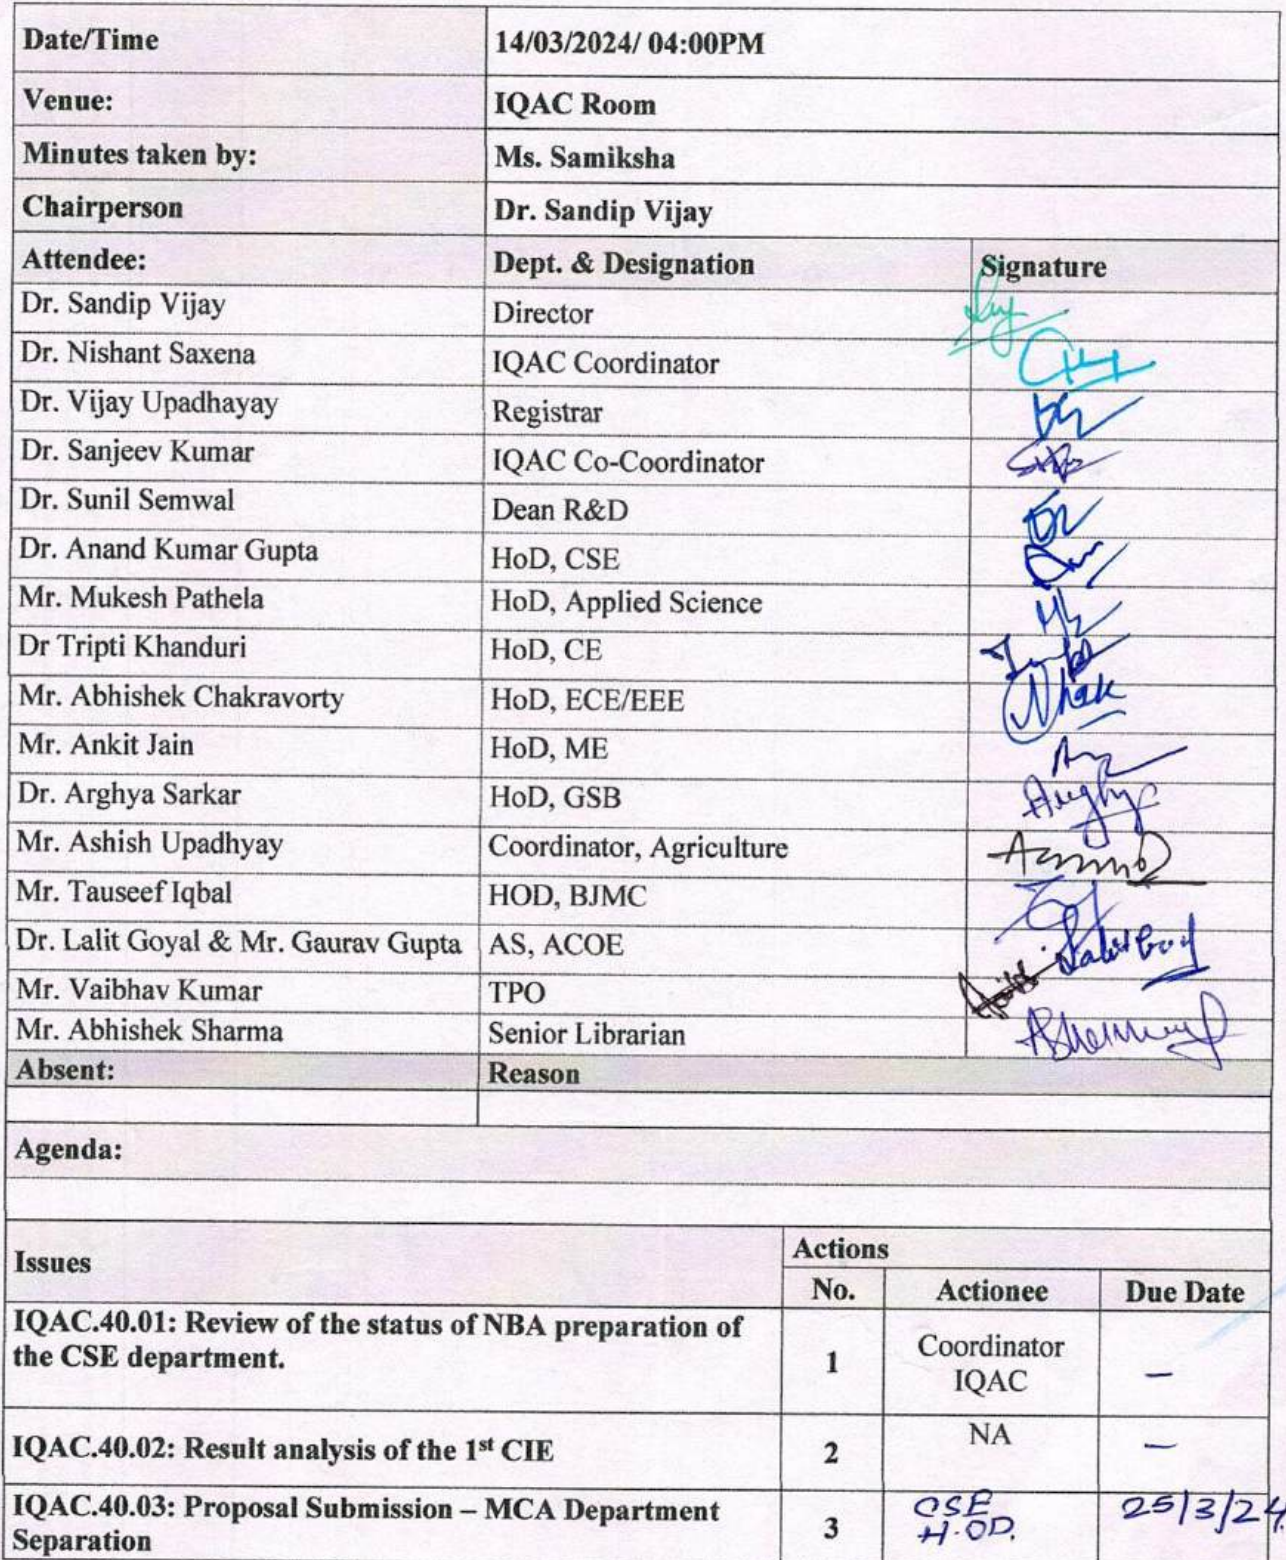 Date/Time 14/03/2024/ 04:00PM
Venue: IQAC Room
Minutes taken by: Ms. Samiksha
Chairperson Dr. Sandip Vijay
Attendee: Dept. & Designation Signature
Dr. Sandip Vijay Director
Dr. Nishant Saxena IQAC Coordinator
Dr. Vijay Upadhayay Registrar
Dr. Sanjeev Kumar IQAC Co-Coordinator
Dr. Sunil Semwal Dean R&D
Dr. Anand Kumar Gupta HoD, CSE
Mr. Mukesh Pathela HoD, Applied Science
Dr Tripti Khanduri HoD, CE
Mr. Abhishek Chakravorty HoD, ECE/EEE
Mr. Ankit Jain HoD, ME
Dr. Arghya Sarkar HoD, GSB
Mr. Ashish Upadhyay Coordinator, Agriculture
Mr. Tauseef Iqbal HOD, BJMC
Dr. Lalit Goyal & Mr. Gaurav Gupta AS, ACOE
Mr. Vaibhav Kumar TPO
Mr. Abhishek Sharma Senior Librarian
Absent: Reason
Agenda:
Issues Actions
No. Actionee Due Date
IQAC.40.01: Review of the status of NBA preparation of
the CSE department. 1 Coordinator
IQAC –
IQAC.40.02: Result analysis of the 1st CIE 2 NA –
IQAC.40.03: Proposal Submission – MCA Department
Separation 3 CSE
H.OD. 25/3/24